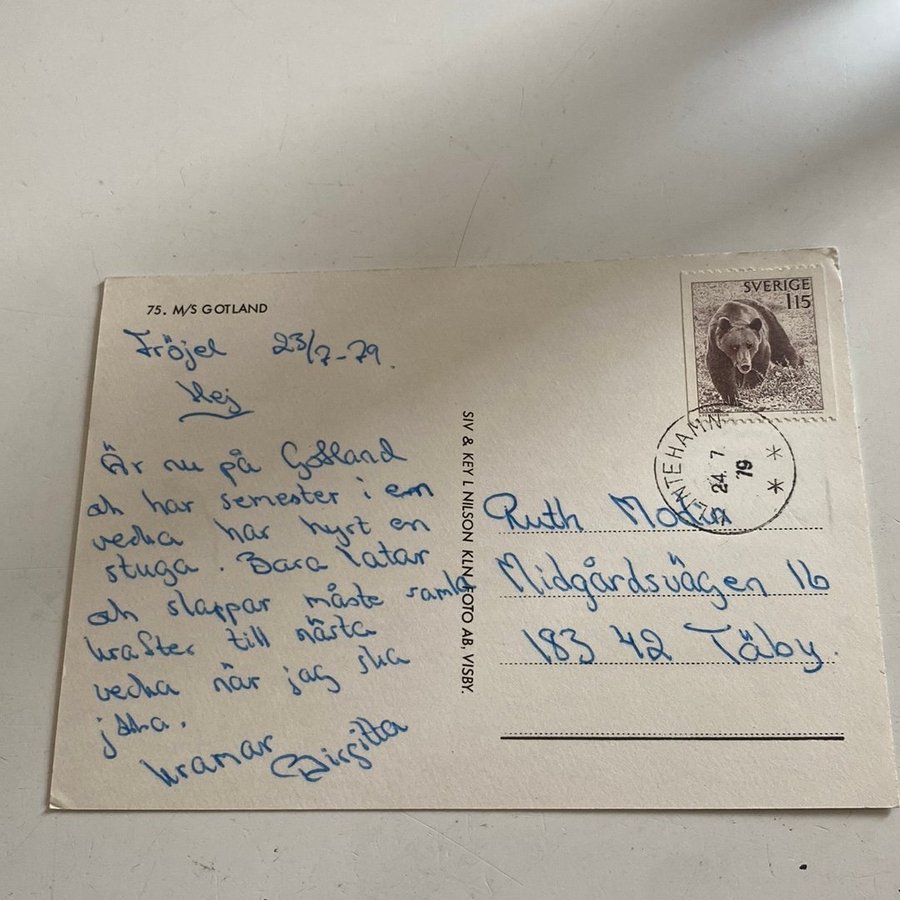 75. M/S GOTLAND
Fröjel 23/7-79.
Hej
Är nu på Gotland
och har semester i en
vecka har hyrt en
stuga. Bara latar
och slappar måste samla
krafter till nästa
vecka när jag ska
jobba.
kramar
Birgitta
SIV & KEY L NILSON KLN FOTO AB, VISBY.
SVERIGE
115
KLINTEHAMN
24. 7.
79
Ruth Modin
Midgårdsvägen 16
183 42 Täby.